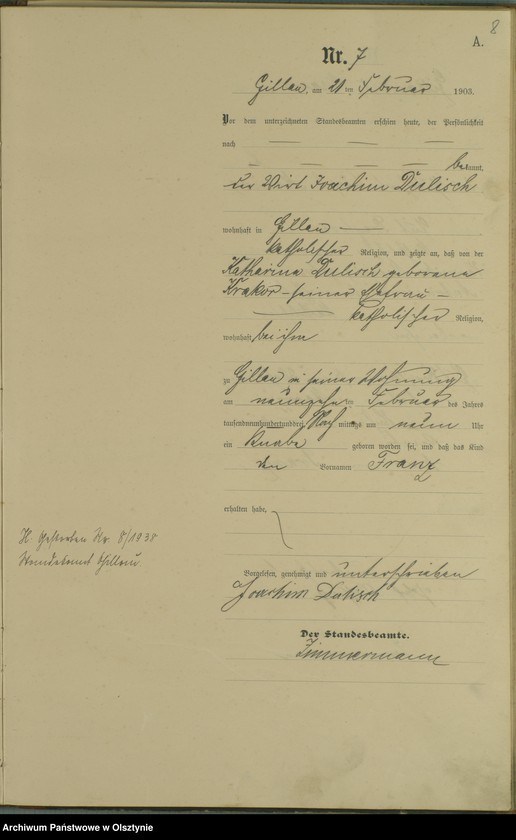 8
A.
Nr. 7
Gillau, am 21 ten Februar 1903.
Vor dem unterzeichneten Standesbeamten erschien heute, der Persönlichkeit
nach
bekannt,
der Wirt Joachim Dulisch
wohnhaft in Gillau
katholischer Religion, und zeigte an, daß von der
Katharina Dulisch geborene
Krakor - seiner Ehefrau -
katholischer Religion,
wohnhaft bei ihm
zu Gillau in seiner Wohnung
am neunzehnten Februar des Jahres
tausendneunhundertunddrei Nachmittags um neun Uhr
ein Knabe geboren worden sei, und daß das Kind
den Vornamen Franz
erhalten habe.
H. Gestorben Nr. 8/1938
Standesamt Gillau
Vorgelesen, genehmigt und unterschrieben
Joachim Dulisch
Der Standesbeamte.
Zimmermann
Archiwum Państwowe w Olsztynie